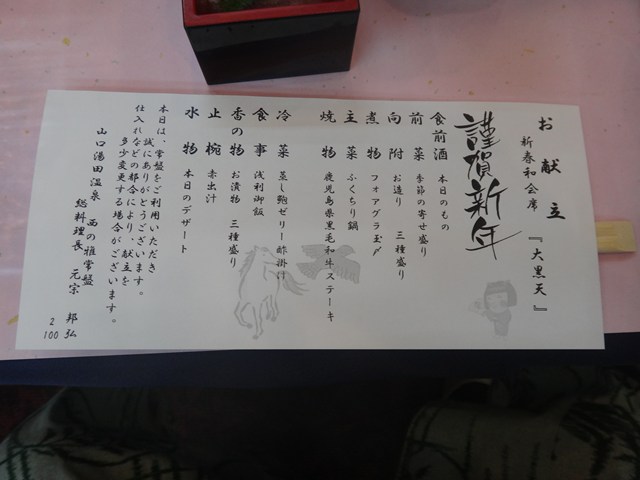 お献立
新春和会席
『大黒天』
謹賀新年
食前酒 本日のもの
前菜 季節の寄せ盛り
向附 お造り 三種盛り
煮物 フォアグラ玉〆
主菜 ふくちり鍋
焼物 鹿児島県黒毛和牛ステーキ
冷菜 蒸し鮑ゼリー酢掛け
食事 浅利御飯
香の物 お漬物 三種盛り
止椀 赤出汁
水物 本日のデザート
本日は、常盤をご利用いただき
誠にありがとうございます。
仕入れなどの都合により、献立を
多少変更する場合がございます。
山口湯田温泉 西の雅常盤
総料理長 元宗 邦弘
2
100